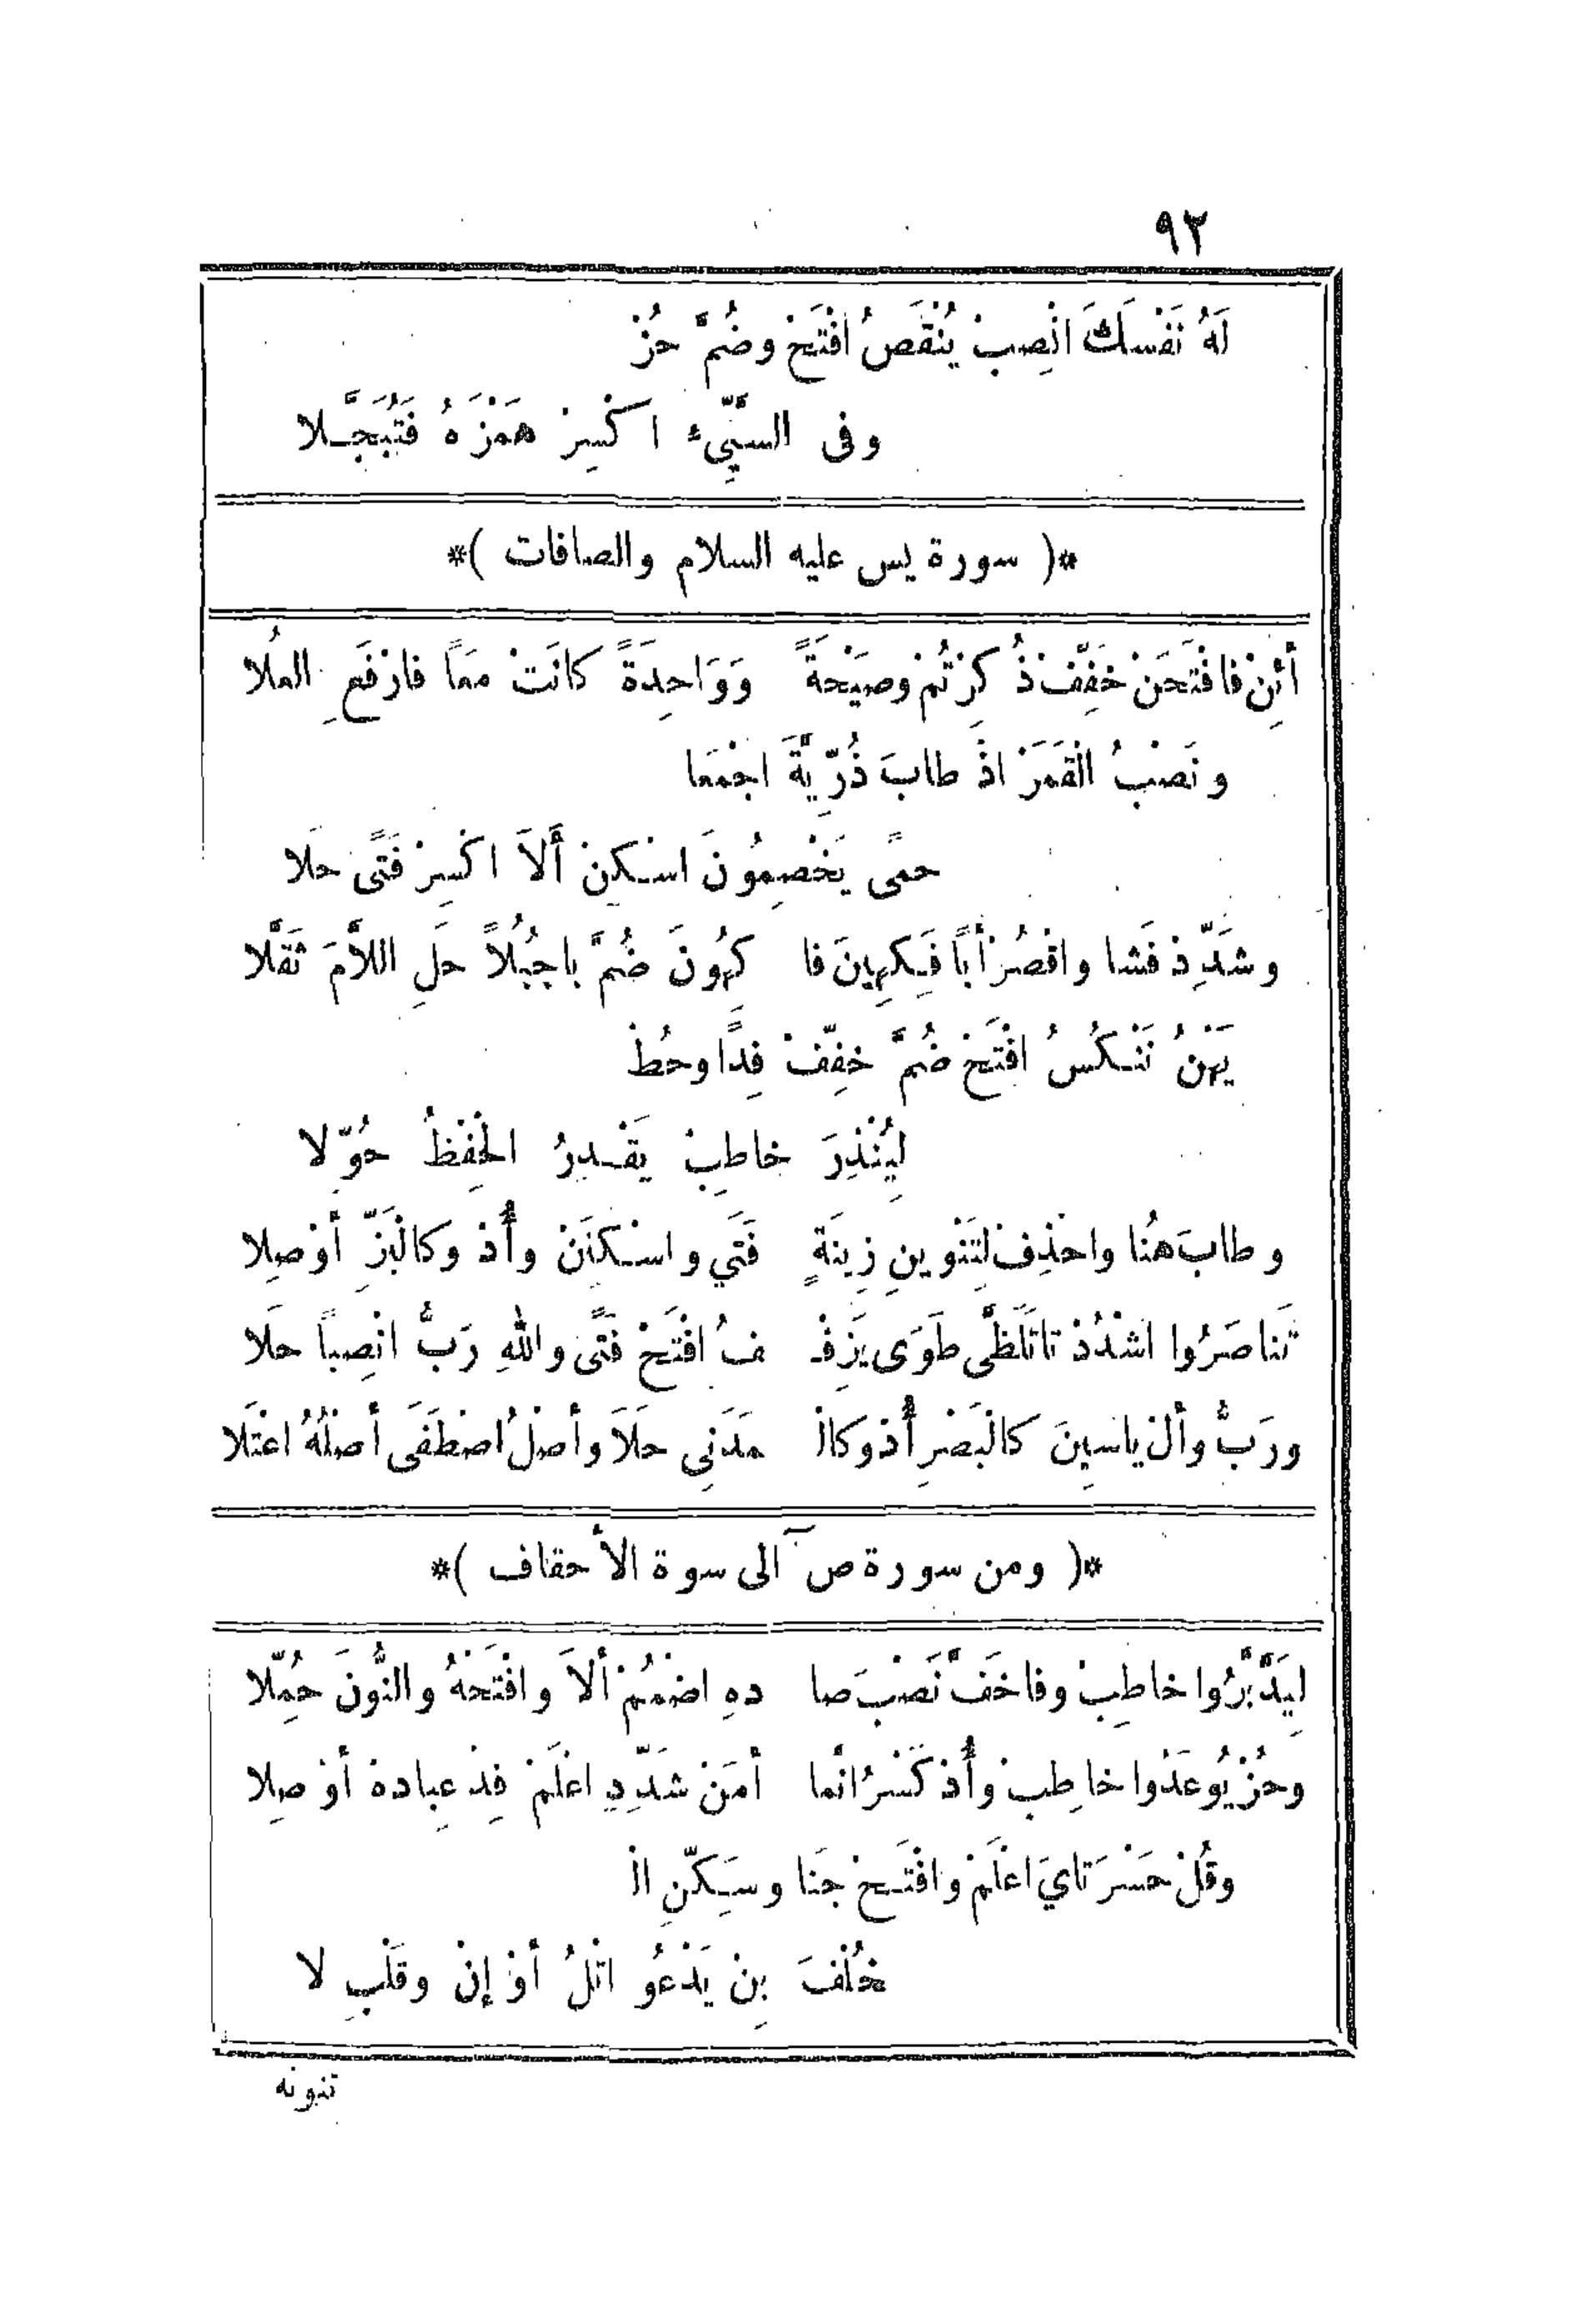 ٩٢
لَهُ نَفْسَكَ انْصِبْ يُنْقَصُ افْتَحْ وضُمَّ حُزْ
وفى السَّيِّىءِ اكْسِرْ هَمْزَهُ فَتُبَجَّلا
*( سورة يس عليه السلام والصافات )*
أئِنْ فافْتَحَنْ خَفِّفْ ذُكِرْتُمْ وصَيْحَةً وَوَاحِدَةً كانَتْ مَعاً فارْفَعِ العُلا
ونَصْبُ الْقَمَرْ اذْ طابَ ذُرِّيَّةَ اجْمَعا
حمًى يَخْصِمُونَ اسْكِنْ أَلاَ اكْسِرْ فَتًى حَلا
وشَدِّدْ فَشا واقْصُرْ أباً فَكِهِينَ فا كِهُونَ ضُمَّ باجُبُلاً حَلِ اللاَّمَ ثَقَّلا
يَهْنُ نَنْكُسُ افْتَحْ ضُمَّ خَفِّفْ فِدًا وحُطْ
لِيُنْذِرَ خاطِبْ يَقْدِرُ الْحِفْظُ حُوِّلا
وطابَ هُنا واحْذِفْ لِتَنْوِينِ زِينَةٍ فَتَى واسْكِنَنْ وأُدْ وكالْبَزِّ أوْصِلا
تَناصَرُوا اشْدُدْ تاتَلَظَّى طَوَى يَزِفْـ ـفُ افْتَحْ فَتًى واللهِ رَبُّ انْصِباً حَلا
ورَبُّ وأل ياسِينَ كالْبَصْرِ أُدْ وكالْ مَدَنِى حَلاَ وأصْلُ اصْطَفَى أصْلُهُ اعْتَلا
*( ومن سورة صۤ الى سوة الأحقاف )*
لِيَدَّبَّرُوا خاطِبْ وفا خَفَّ نَصْبَ صا دهِ اضْمُمْ ألاَ وافْتَحْهُ والنُّونَ حُمِّلا
وحُزْ يُوعَدُوا خاطِبْ وأُدْ كَسْرُ انَّما أمَنْ شَدِّدِ اعْلَمْ فِدْ عِبادهْ أوْصِلا
وقُلْ حَسْرَتايَ اعْلَمْ وافْتَحْ جَنا وسَكِّنِ الْ
خُلْفَ بِنْ يَدْعُو اتْلُ أوْ إنْ وقَلْبِ لا
تنونه